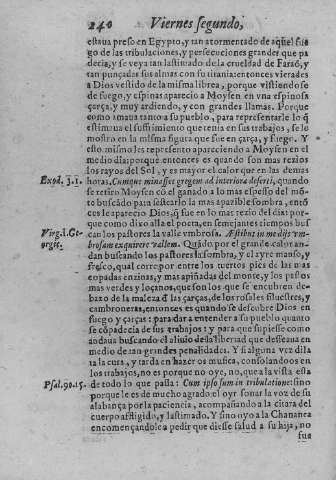 240 Viernes segundo,
estaua preso en Egypto, y tan atormentado de aq̃l fue-
go de las tribulaciones, y persecuciones grandes que pa
decia, y se veya tan lastimado de la crueldad de Faraõ, y
tan punçadas sus almas con su tirania: entonces vierades
a Dios vestido de la misma librea, porque vistiendose
de fuego, y espinas aparecio a Moysen en vna espinosa
çarça, y muy ardiendo, y con grandes llamas. Porque
como amaua tanto a su pueblo, para representarle lo q̃
estimaua el sufrimiento que tenia en sus trabajos, se lo
mostro en la misma figura que fue en çarça, y fuego. Y
esto mismo les represento apareciendo a Moysen en el
medio dia: porque entonces es quando son mas rezios
los rayos del Sol, y es mayor el calor que en las demas
Exod. 3.1. horas, Cumque minasset gregem ad interiora deserti, quando
se retiro Moysen cõ el ganado a lo mas espesso del mõ-
te buscãdo para sestearlo la mas apazible sombra, entõ
ces le aparecio Dios, q̃ fue en lo mas rezio del dia: por-
que como dixo alla el poeta, en semejantes tiempos bus
Virg. 1. Ge- can los pastores la valle vmbrosa. Aestibus in medijs vm-
orgic. brosam exquirere vallem. Quãdo por el grande calor an-
dan buscando los pastores la sombra, y el ayre manso, y
fresco, qual corre por entre los tuertos pies de las mas
copadas enzinas, y mas apiñadas del monte, y los pastos
mas verdes y loçanos, que son los que se encubren de-
baxo de la maleza d̃ las çarças, de los rosales siluestres, y
cambroneras, entonces es quando se descubre Dios en
fuego y çarças: para dar a entender a su pueblo quanto
se cõpadecia de sus trabajos: y para que supiesse como
andaua buscando el aliuio de la libertad que desseaua en
medio de tan grandes penalidades. Y si alguna vez dila
ta la cura, y tarda en hazernos muñeca, consolandoos en
los trabajos, no es porque no oye, no, que a vista esta
Psal. 90. 15. de todo lo que passa: Cum ipso sum in tribulatione: sino
porque le es de mucho agrado el oyr sonar la voz de su
alabança por la paciencia, acompañando a la citara del
cuerpo afligido, y lastimado. Y si no oyo a la Chananea
encomençandole a pedir que diesse salud a su hija, no
fue